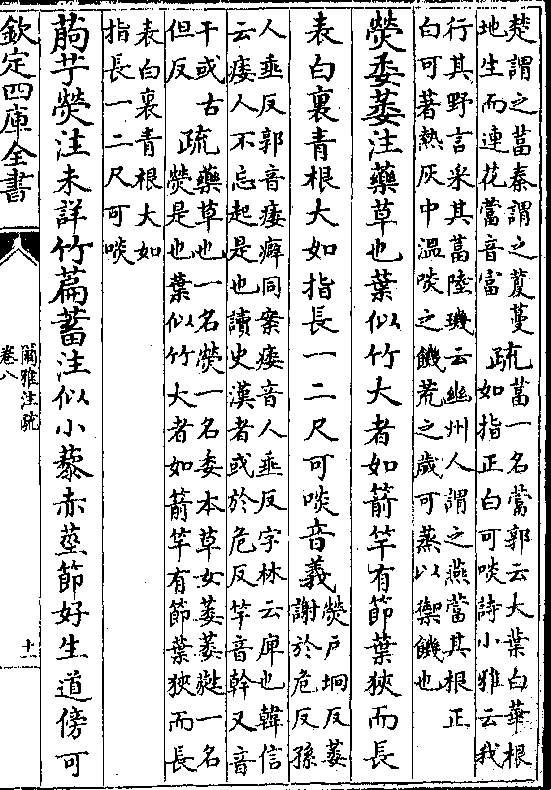 楚謂之葍秦謂之藑蔓
地生而連花葍音富
疏葍一名䔰郭云大葉白華根
如指正白可啖詩小雅云我
行其野言采其葍陸璣云幽州人謂之燕葍其根正
白可著熱灰中温啖之饑荒之歲可蒸以禦饑也
熒委萎注藥草也葉似竹大者如箭竿有節葉狹而長
表白裏青根大如指長一二尺可啖音義
熒戶坰反萎
謝於危反孫
人垂反郭音痿癖同案痿音人垂反字林云痹也韓信
云痿人不忘起是也讀史漢者或於危反竿音幹又音
干或古
但反
疏藥草也一名熒一名委本草女萎萎䕽一名
熒是也葉似竹大者如箭竿有節葉狹而長
表白裏青根大如
指長一二尺可啖
葋艼熒注未詳竹萹蓄注似小藜赤莖節好生道傍可
欽定四庫全書
爾雅注疏
卷八
十一